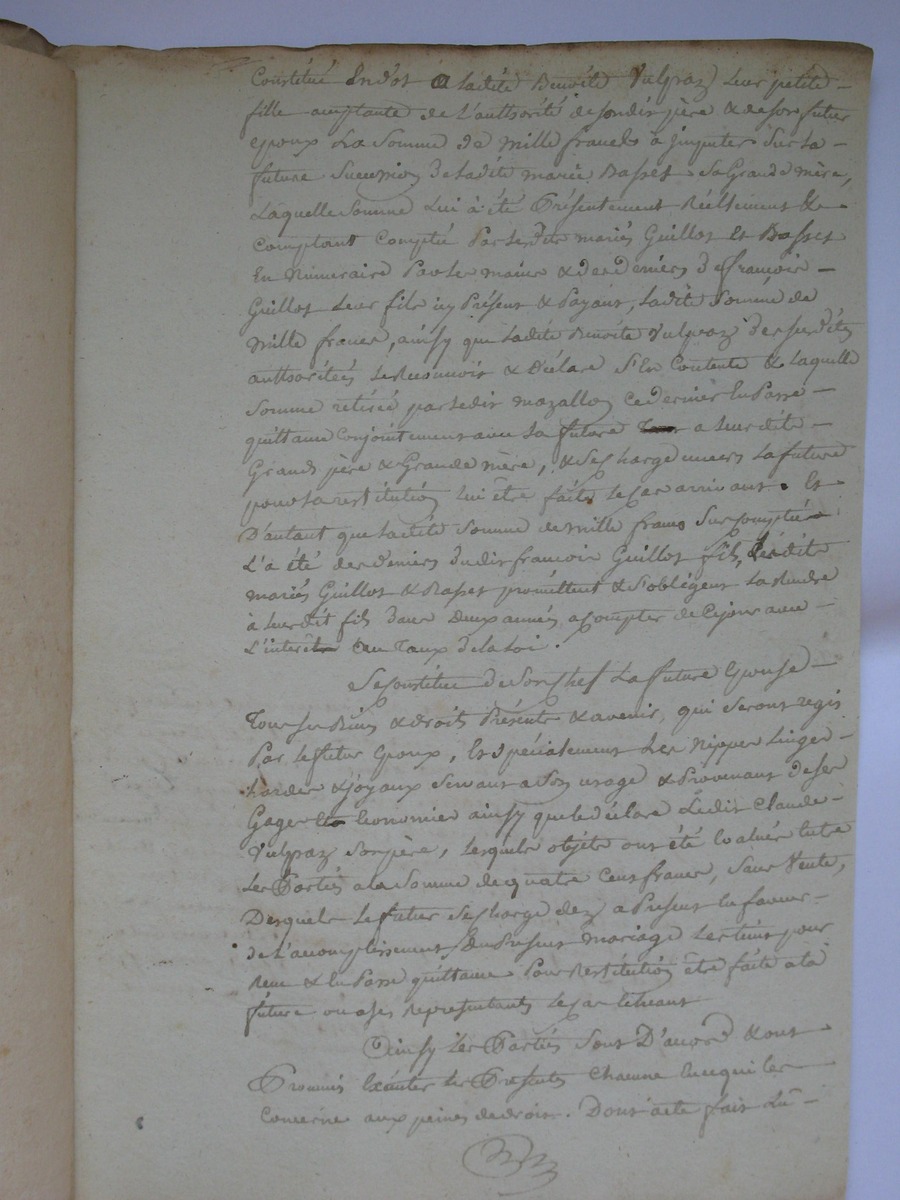 Constitué En dot a Ladite Benoite Vulpraz Leur petite
fille acceptante de L'authorité de sondit père & de son futur
epoux La Somme de mille francs à Jmputer Sur La
future Sucession de Ladite mariée Basset Sa Grande mère,
Laquelle Somme Lui à été Présentement Réellement &
Comptant Comptée Par lesdits mariés Guillot Et Basset
En Numeraire Par les mains & des deniers de françois
Guillot Leur fils icy Présent & Payant, Ladite Somme de
mille francs, ainsy que Ladite Benoite Vulpraz des susdites
authoritées Le Reconnoit & Déclare S'En Contente & Laquelle
Somme retirée par Ledit mazallon ce dernier En Passe
quittance Conjointement avec La future a Leurdits
Grand père & Grande mère, & Se Charge envers La future
pour La restitution lui être faite le Cas arrivant. Et
D'autant que Ladite Somme de mille francs Sus comptée
L'a été des deniers dudit françois Guillot fils, Lesdits
mariés Guillot & Basset promettent & S'obligent La Rendre
à Leurdit fils dans deux années a Compter de Ce jour avec
L'interêt au Taux de la Loi.
Se Constitue de Son Chef La future Epouse
Tous ses Biens & droits Présents & avenir, qui Seront regis
Par Le futur Epoux, Et Spécialement Les Nippes Linges
hardes & joyaux Servant a Son usage & Provenant de ses
Gages Economies ainsy que le déclare Ledit Claude
Vulpraz Son père, Lesquels objets ont été Evalués Entre
Les Parties a la Somme de quatre Cent francs, Sans Vente,
Desquels Le futur Se Charge dez a Present En faveur
de L'acomplissement du Présent mariage Les tient pour
Reçu & En Passe quittance Pour Restitution être faite a la
future ou a ses Representants le Cas Echeant
Ainsy Les Parties Sont D'accord & ont
Promis Executer Les Presentes Chacune En ce qui les
Concerne aux peines de droit. Dont acte fait Lu